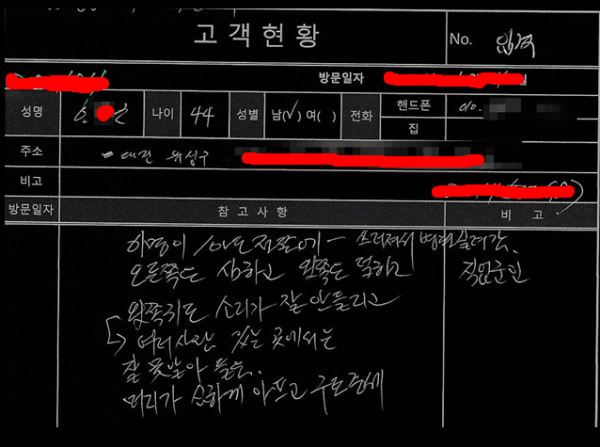 고객현황
No.
방문일자
성명 나이 44 성별 남(√) 여( ) 전화 핸드폰 010.
집
주소 대전 유성구
비고
방문일자 참고사항 비고
이명이 쓰러져서 병원실려감.
오른쪽도 심하고 왼쪽도 덜하고 직업군인
왼쪽귀도 소리가 잘 안들리고
여러사람 있는 곳에서는
잘 못알아 들음.
머리가 심하게 아프고 구토증세